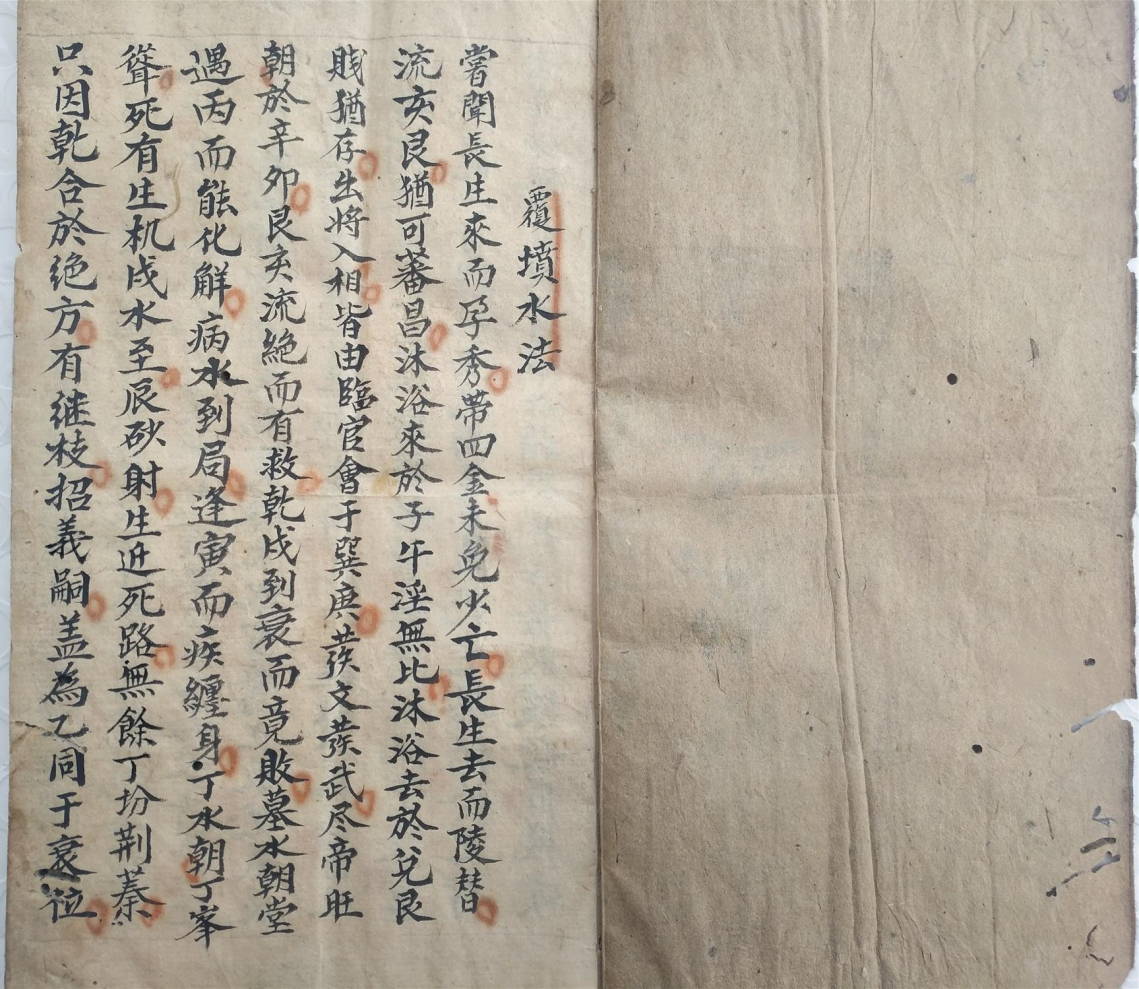 覆墳水法
嘗聞長生來而孕秀帶四金未免少亡長生去而陵替
流亥艮猶可蕃昌沐浴來於子午淫無比沐浴去於兌艮
賎猶存出将入相皆由臨官會于巽庚發文發武尽帝旺
朝於辛卯艮亥流絶而有救乾戌到衰而竟敗墓水朝堂
遇丙而能化解病水到局逢寅而疾纏身丁水朝丁峯
聳死有生机戌水至辰砂射生近死路無餘丁坟荆蓁
只因乾合於绝方有继枝招義嗣盖為乙同于衰位